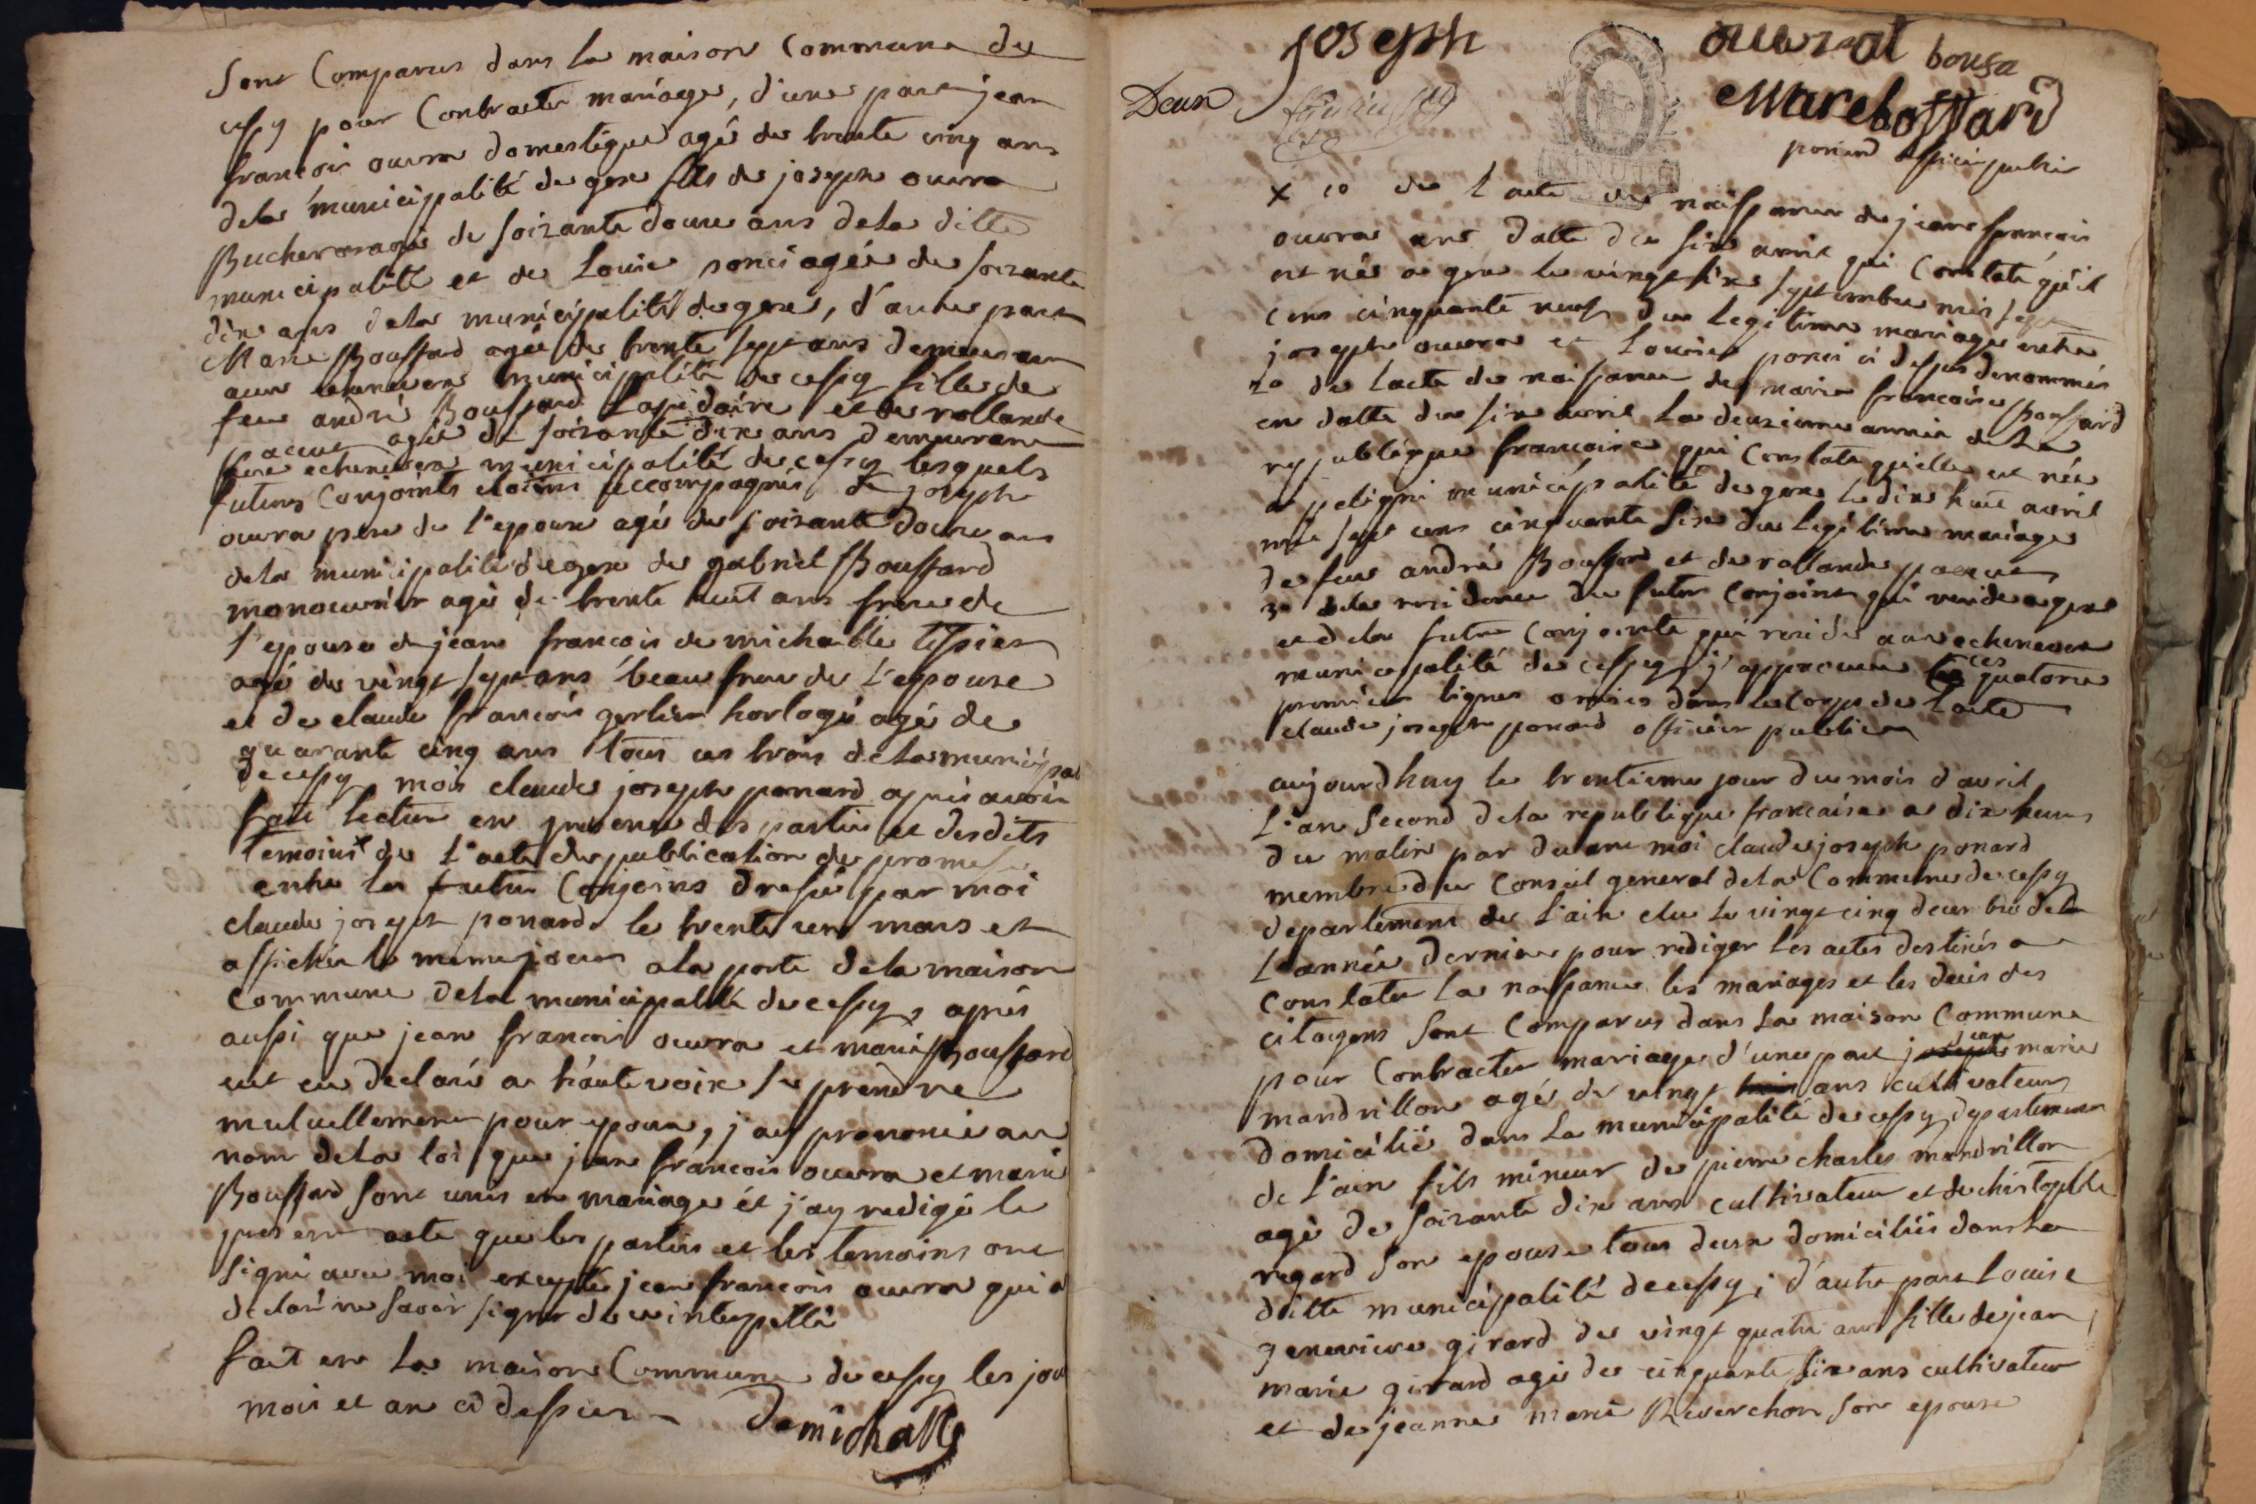 sont Comparus dans la maison Commune de
cessy pour Contracter mariage, d'une part jean
francois ouvra domestique agé de trente cinq ans
dela municipalité de gex fils de joseph ouvra
Bucheron agé de soixante douze ans dela ditte
municipalité et de Louise ponci agée de soixante
dix ans dela municipalité de gex, d'autre part
Marie Boussard agée de trente sept ans demeurant
aux municipalité de cessy fille de
feu andré Boussard Lapidaire et de rollande
pacaut agée de soixante dix ans demeurant
aux echenevex municipalité de cessy lesquels
futurs Conjoints etoint accompagnés de joseph
ouvra pere de l'epoux agé de soixante douze ans
dela municipalité de gex de gabriel Boussard
manouvrier agé de trente huit ans frere de
l'epouse de jean francois de michaille
agé de vingt sept ans beau frere de l'epouse
et de claude francois gerlier horlogé agé de
quarante cinq ans tous ces trois dela municipal
de cessy mois claude joseph ponard apris avoir
fait lecture en presence des parties et desdits
temoins x de l'acte de publication de promesse
entre les futur Conjoins dressé par moi
claude joseph ponard le trente un mars et
affichée le meme jour a la porte dela maison
Commune dela municipalité de cessy, aprés
aussi que jean francois ouvra et marie Boussard
eut eu declaré a haute voix se prendre
mutuellement pour epoux, j'ay prononcé au
nom dela loi que jean francois ouvra et marie
Boussard sont unis en mariage et j'ay redigé le
present acte que les parties et les temoins ont
signé avec moi excepté jean francois ouvra qui a
declaré ne savoir signer de ce interpellé
fait en la maison Commune de cessy les jour
mois et an ci dessus
Demichalle
joseph ouvrat bousa
Deux Marebossard
ponard officier public
x 1o de l'acte de naissance de jean francois
ouvra en datte du six avril qui Constate qu'il
est né a gex le vingt six septembre mil sept
cens cinquante neuf du legitime mariage entre
joseph ouvra et Louise ponci ci dessus denommés
2o de lacte de naissance de marie francoise Boussard
en datte du six avril la deuxieme année dela
republique francoise qui Constate quelle est née
a peligni municipalité de gex le dix huit avril
mil sept cens cinquante six du legitime mariage
de feu andré Boussard et de rollande pacaut
3o dela residence du futur Conjoint qui reside a gex
et dela future Conjointe qui reside aux echenevex
municipalité de cessy j'approuve ces quatorze
premier lignes omises dans le corps de l'acte
claude joseph ponard officier public
aujourdhuy le trentieme jour du mois d'avril
L'an second dela republique francaise a dix heures
du matin par devant moi claude joseph ponard
membre du Conseil general dela Commune de cessy
departement de l'ain elu le vingt cinq decembre de
L'année derniere pour rediger les actes destinés a
Constater la naissance les mariages et les decés des
citoyens sont Comparus dans la maison Commune
pour Contracter mariage d'une part jean marie
mandrillon agé de vingt ans cultivateur
domicilié dans la municipalité de cessy departement
de l'ain fils mineur de pierre charles mandrillon
agé de soixante dix ans cultivateur et de christophle
regard son epouse tous deux domiciliés dans la
ditte municipalité de cessy; d'autre part Louise
genevieve girard de vingt quatre ans fille de jean
marie girard agé de cinquante six ans cultivateur
et de jeanne marie Reverchon son epouse